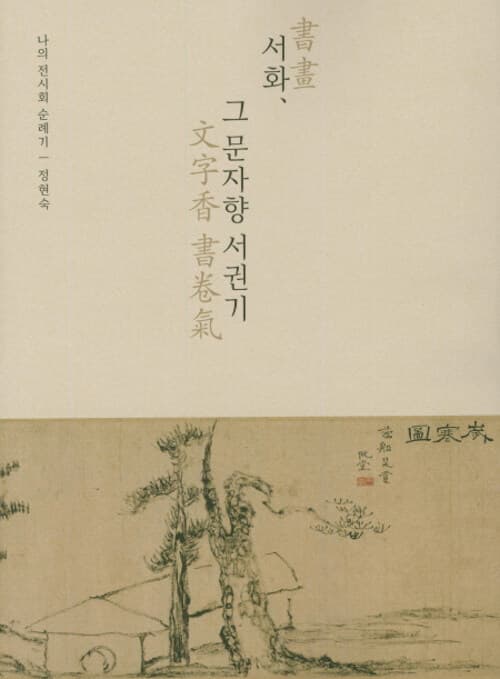 書畫
서화、
그 문자향 서권기
文字香 書卷氣
나의 전시회 순례기 — 정현숙
歲寒圖
藕船是賞
阮堂